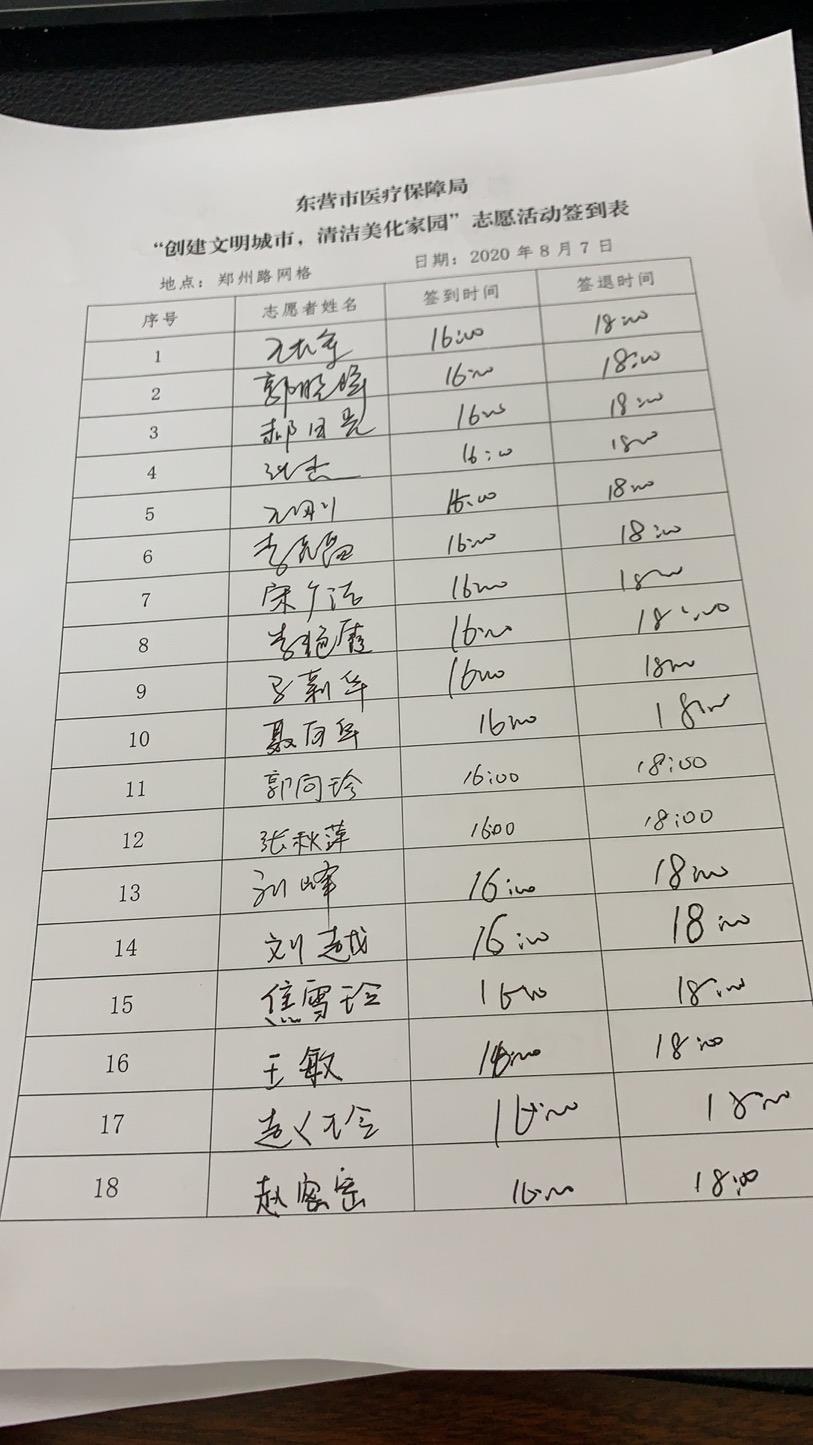 东营市医疗保障局
“创建文明城市，清洁美化家园”志愿活动签到表
地点：郑州路网格 日期：2020年8月7日
序号 志愿者姓名 签到时间 签退时间
1 16:00 18:00
2 郭晓峰 16:00 18:00
3 16:00 18:00
4 张杰 16:00 18:00
5 16:00 18:00
6 16:00 18:00
7 16:00 18:00
8 李艳霞 16:00 18:00
9 16:00 18:00
10 16:00 18:00
11 郭同珍 16:00 18:00
12 张秋萍 16:00 18:00
13 刘峰 16:00 18:00
14 刘越 16:00 18:00
15 焦雪玲 16:00 18:00
16 王敏 16:00 18:00
17 16:00 18:00
18 赵密密 16:00 18:00